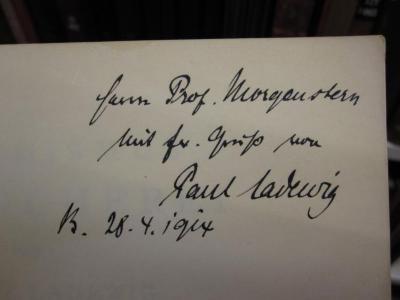 Herrn Prof. Morgenstern
mit fr. Gruß von
Paul Ladewig
B. 28.4.1914